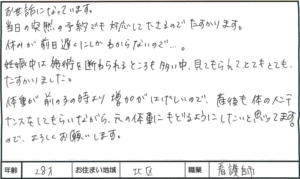 お世話になっています。
当日の突然の予約でも対応して下さるのでたすかります。
休みが前日遅くにしかわからないので…。
妊娠中は施術を断られるところも多い中、見てもらえてとてもとても、
たすかりました。
体重が前の子の時より増加がはげしいので、産後も体のメンテ
ナンスをしてもらいながら、元の体重にもどるようにしたいと思ってます
ので、よろしくお願いします。
年齢 28才 お住まい地域 北区 職業 看護師